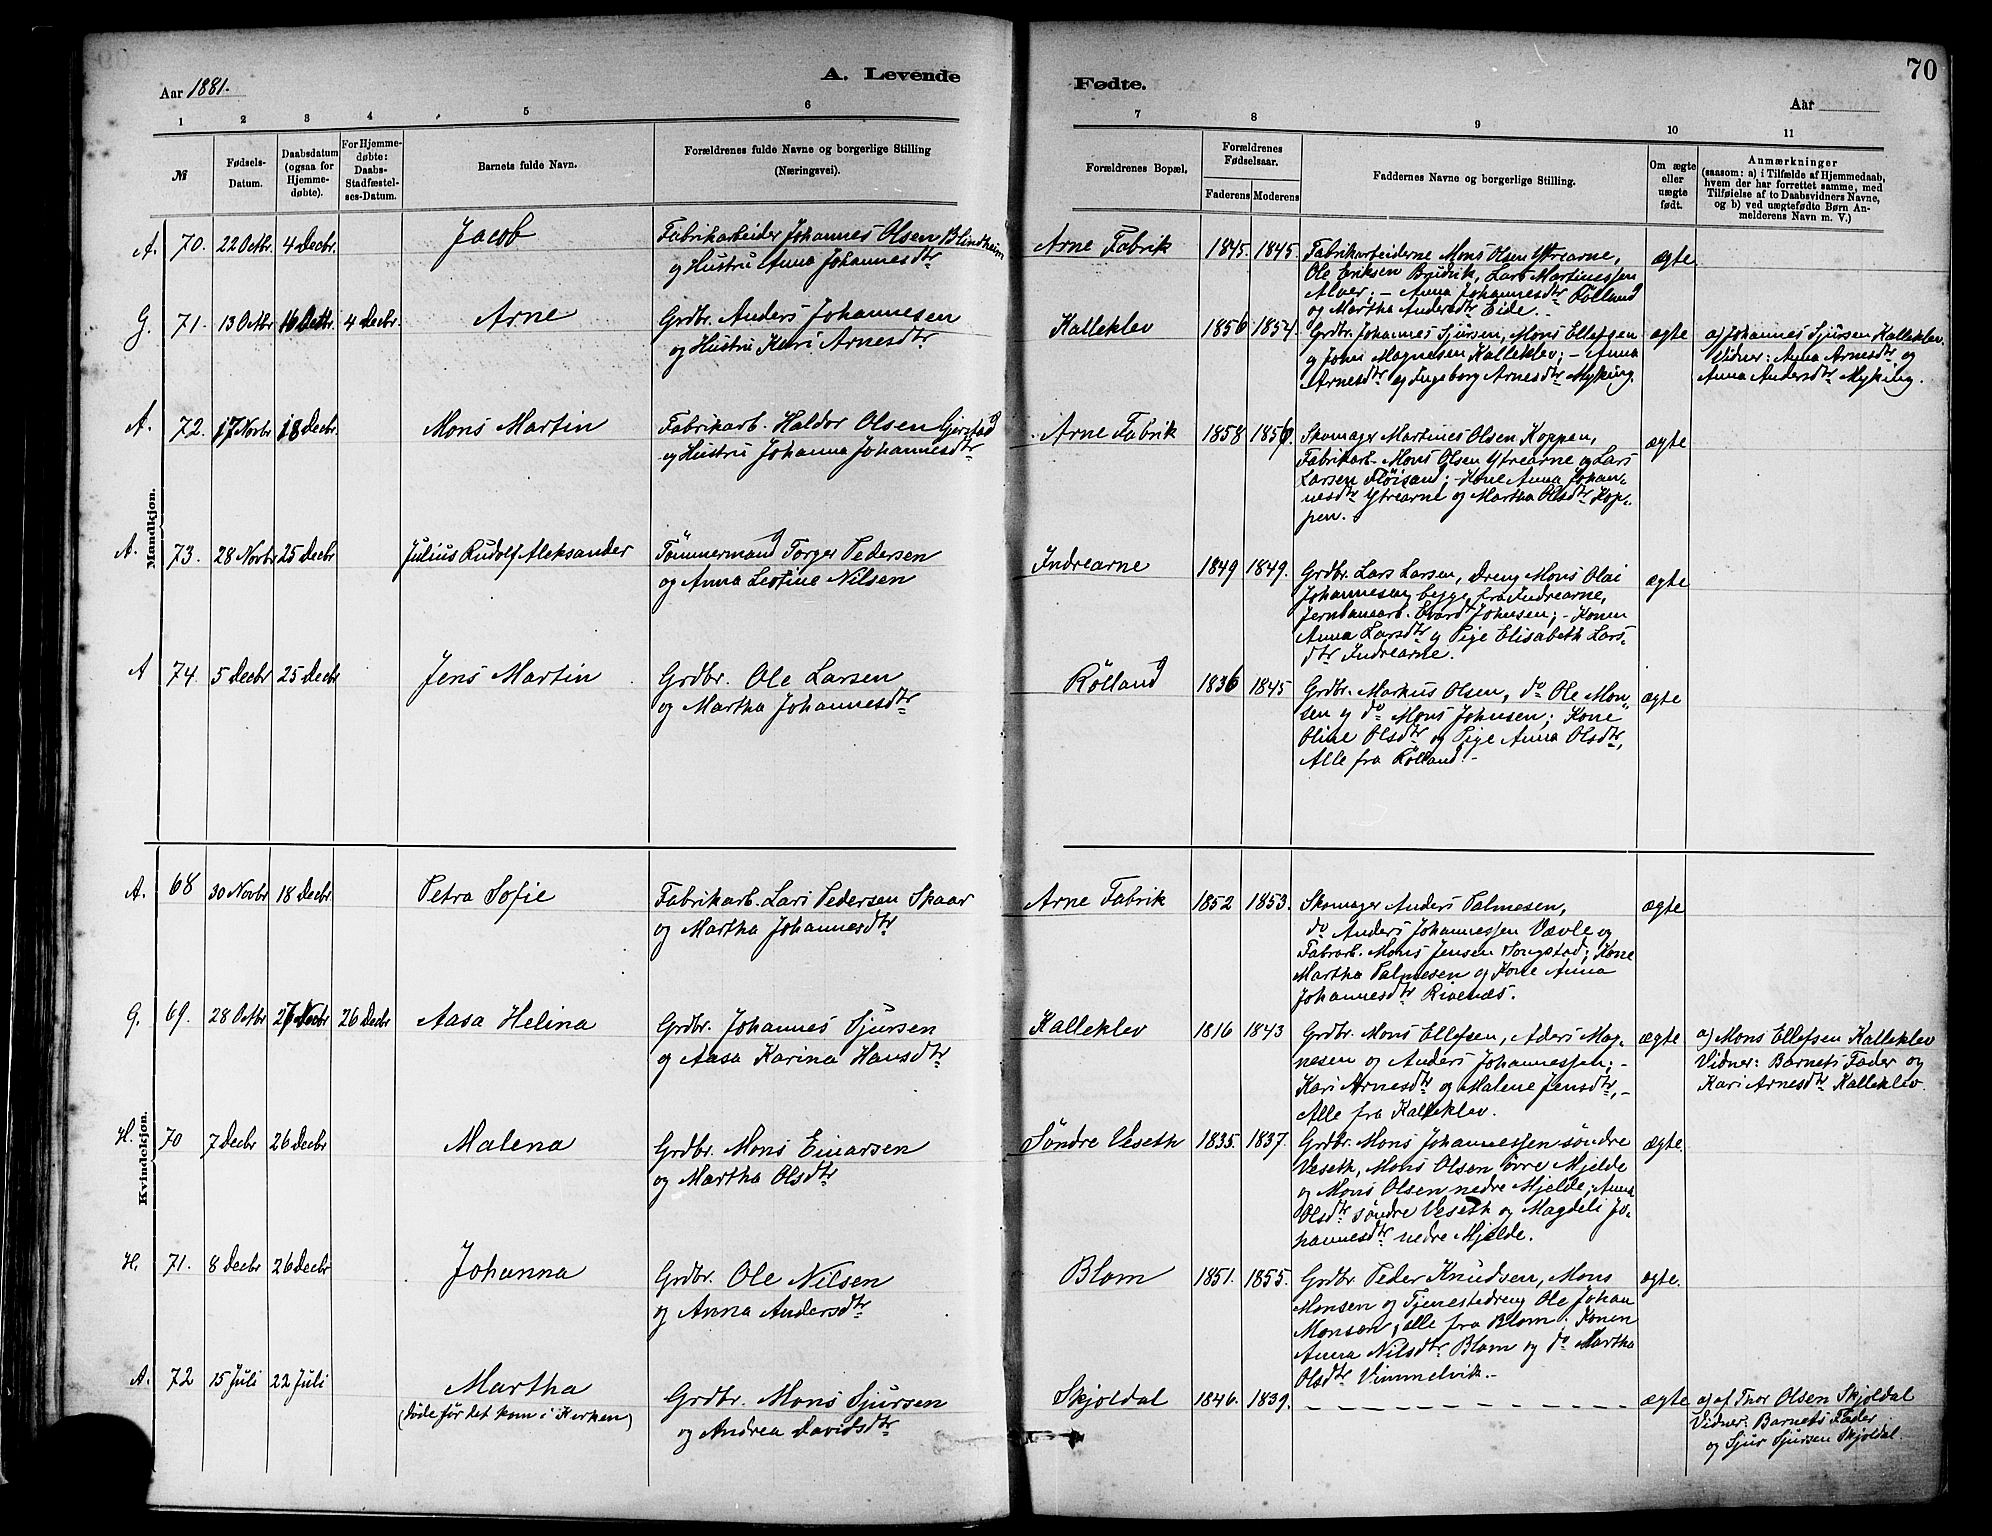 70
Aar 1881.
A. Levende
Fødte.
Aar
1
2
3
4
5
6
7
8
9
10
11
№
Fødsels-
Datum.
Daabsdatum
(ogsaa for
Hjemme-
døbte).
For Hjemme-
døbte:
Daabs-
Stadfæstel-
ses-Datum.
Barnets fulde Navn.
Forældrenes fulde Navne og borgerlige Stilling
(Næringsvei).
Forældrenes Bopæl.
Forældrenes
Fødselsaar.
Faderens
Moderens
Faddernes Navne og borgerlige Stilling.
Om ægte
eller
uægte
født.
Anmærkninger
(saasom: a) i Tilfælde af Hjemmedaab,
hvem der har forrettet samme, med
Tilføielse af to Daabsvidners Navne,
og b) ved uægtefødte Børn An-
melderens Navn m. V.)
Mandkjøn.
A. 70. 22 Octbr. 4 Decbr. Jacob
Fabrikarbeider Johannes Olsen Blindheim
og Hustru Anna Johannesdtr
Arne Fabrik 1845. 1845.
Fabrikarbeiderne Mons Olsen Ytrearne,
Ole Eriksen Brudvik, Lars Martinessen
Alver; – Anna Johannesdtr Rølland
og Martha Andersdtr Eide.
ægte
G. 71. 13 Octbr 16 Octbr. 4 Decbr. Arne
Grdbr. Anders Johannesen
og Hustru Kari Arnesdtr
Kalleklev 1856 1854.
Grdbr. Johannes Sjursen, Mons Ellefsen
og Johs Magnesen Kalleklev; – Anna
Arnesdtr og Ingeborg Arnesdtr Myking.
ægte
a) Johannes Sjursen Kalleklev.
Vidner: Anna Arnesdtr og
Anna Andersdtr Myking.
A. 72. 17 Novbr 18 Decbr. Mons Martin
Fabrikarb. Haldor Olsen Gjerstad
og Hustru Johanna Johannesdtr
Arne Fabrik 1858 1856.
Skomager Martines Olsen Koppen,
Fabrikarb. Mons Olsen Ytrearne og Lars
Larsen Fløisand; – Kone Anna Johan-
nesdtr Ytrearne og Martha Olsdtr Kop-
pen.
ægte
A. 73. 28 Novbr 25 Decbr. Julius Rudolf Aleksander
Tømmermand Torger Pedersen
og Anna Leotine Nilsen
Indrearne 1849 1849.
Grdbr. Lars Larsen, Dreng Mons Olai
Johannesen begge fra Indrearne,
Jernbanearb. Evardt Johnsen; – Konen
Anna Larsdtr og Pige Elisabeth Lars-
dtr Indrearne.
ægte
A 74. 5 Decbr 25 Decbr Jens Martin
Grdbr. Ole Larsen
og Martha Johannesdtr
Rølland 1836 1845
Grdbr. Markus Olsen, do Ole Mon-
sen og do Mons Johnsen; Kone
Oline Olsdtr og Pige Anna Olsdtr,
Alle fra Rølland. –
ægte
Kvindekjøn.
A. 68 30 Novbr 18 Decbr Petra Sofie
Fabrikarb. Lars Pedersen Skaar
og Martha Johannesdtr
Arne Fabrik 1852 1853.
Skomager Anders Palmesen,
do Anders Johannessen Vævle og
Fabrarb. Mons Jensen Songstad; Kone
Martha Palmesen og Kone Anna
Johannesdtr Rivenæs.
ægte
G. 69. 28 Octbr 27 Novbr 26 Decbr Aasa Helina
Grdbr. Johannes Sjursen
og Aasa Karina Hansdtr
Kalleklev 1816 1843
Grdbr. Mons Ellefsen, Aders Mag-
nesen og Anders Johannessen; –
Kari Arnesdtr og Malene Jensdtr, –
Alle fra Kalleklev.
ægte
a) Mons Ellefsen Kalleklev
Vidner: Barnets Fader og
Kari Arnesdtr Kalleklev.
H. 70 7 Decbr 26 Decbr Malena
Grdbr. Mons Einarsen
og Martha Olsdtr
Søndre Veseth 1835. 1837.
Grdbr. Mons Johannessen søndre
Veseth, Mons Olsen øvre Mjelde
og Mons Olsen nedre Mjelde; Anna
Olsdtr søndre Veseth og Magdeli Jo-
hannesdtr nedre Mjelde.
ægte.
H. 71. 8 Decbr 26 Decbr Johanna
Grdbr. Ole Nilsen
og Anna Andersdtr
Blom 1851. 1855.
Grdbr. Peder Knudsen, Mons
Monsen og Tjenestedreng Ole Johan
Monsen, alle fra Blom. Konen
Anna Nilsdtr Blom og do Martha
Olsdtr Vimmelvik. –
ægte.
A. 72 15 Juli 22 Juli Martha
(Døde før det kom i Kirken)
Grdbr. Mons Sjursen
og Andrea Davidsdtr
Skjoldal 1846. 1839.
ægte
a) af Thor Olsen Skjoldal
Vidner: Barnets Fader
og Sjur Sjursen Skjoldal.